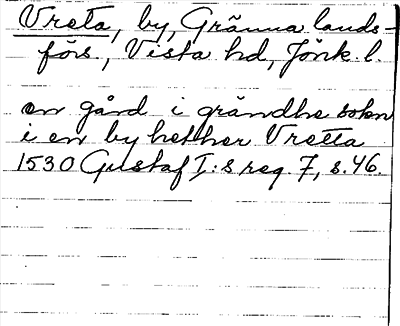 Vreta, by, Gränna lands-
förs., Vista hd, Jönk. l.
en gård i grändhe sokn
i en by hether Vretta
1530 Gustaf I:s reg. 7, s. 46.